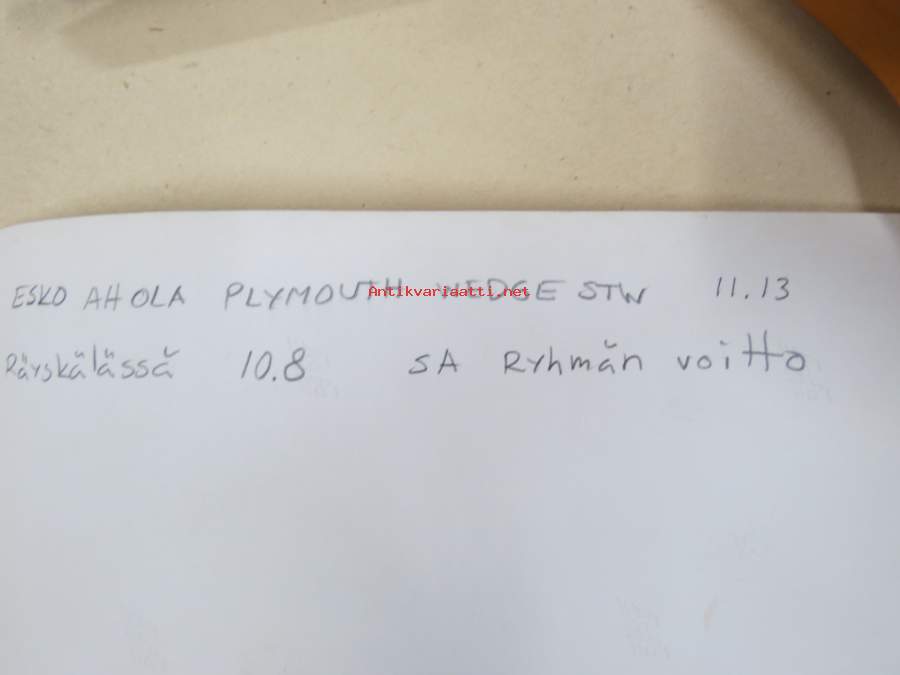 ESKO AHOLA PLYMOUTH WEDGE STW 11.13
Antikvariaatti.net
Räyskälässä 10.8 SA Ryhmän voitto